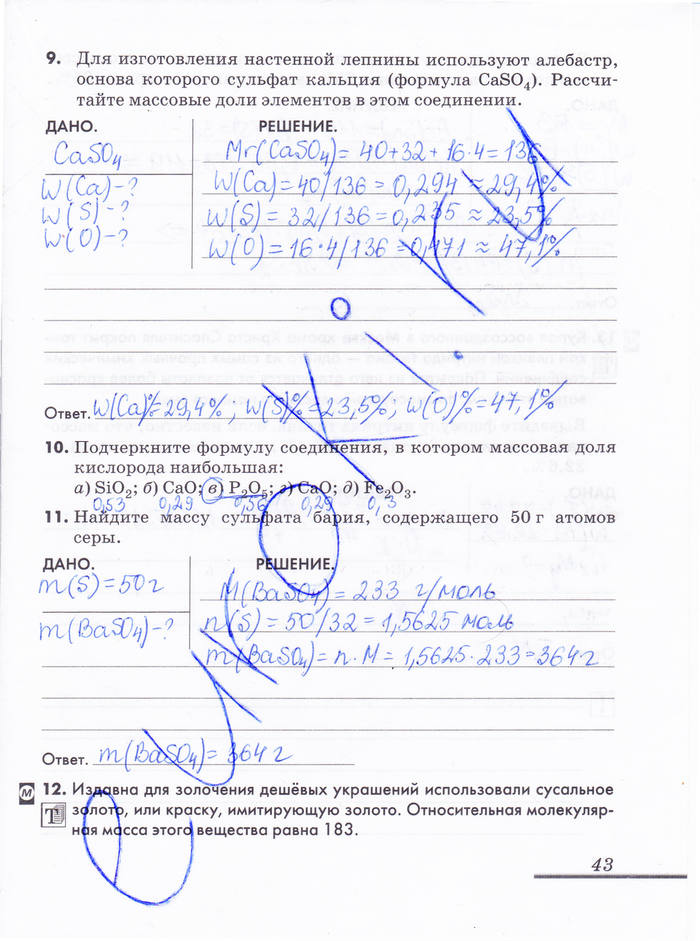 9. Для изготовления настенной лепнины используют алебастр,
основа которого сульфат кальция (формула CaSO₄). Рассчи-
тайте массовые доли элементов в этом соединении.
ДАНО. РЕШЕНИЕ.
CaSO₄ Mr(CaSO₄) = 40+32+16·4=136
W(Ca)-? W(Ca)=40/136=0,294 ≈ 29,4%
W(S)-? W(S)=32/136=0,235 ≈ 23,5%
W(O)-? W(O)=16·4/136=0,471 ≈ 47,1%
Ответ. W(Ca)%=29,4%; W(S)%=23,5%; W(O)%=47,1%
10. Подчеркните формулу соединения, в котором массовая доля
кислорода наибольшая:
а) SiO₂; б) CaO; в) P₂O₅; г) CaO; д) Fe₂O₃.
0,53 0,29 0,56 0,29 0,3
11. Найдите массу сульфата бария, содержащего 50 г атомов
серы.
ДАНО. РЕШЕНИЕ.
m(S)=50г M(BaSO₄)= 233 г/моль
m(BaSO₄)-? n(S)= 50/32=1,5625 моль
m(BaSO₄)= n·M=1,5625·233=364 г
Ответ. m(BaSO₄)= 364 г
М 12. Издавна для золочения дешёвых украшений использовали сусальное
Т золото, или краску, имитирующую золото. Относительная молекуляр-
ная масса этого вещества равна 183.
43